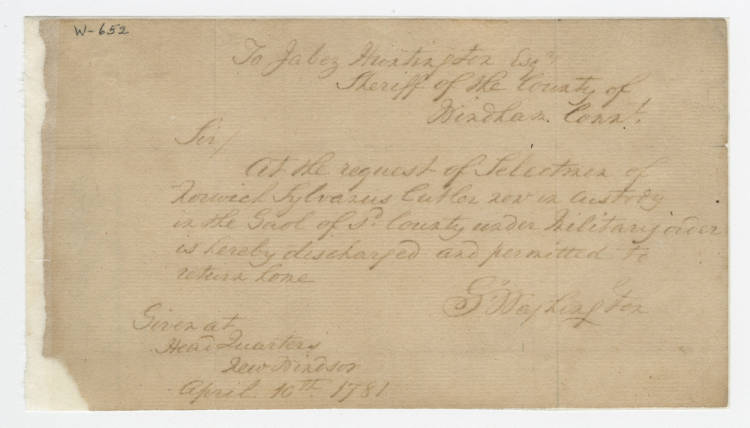 W-652
To Jabez Huntington Esqr
Sheriff of the County of
Windham. Connt.
Sir/
At the request of Selectmen of
Norwich Sylvanus Cutler now in custody
in the Gaol of sd. County under Military order
is hereby discharged and permitted to
return home
Go Washington
Given at
Head Quarters
New Windsor
April 16th. 1781